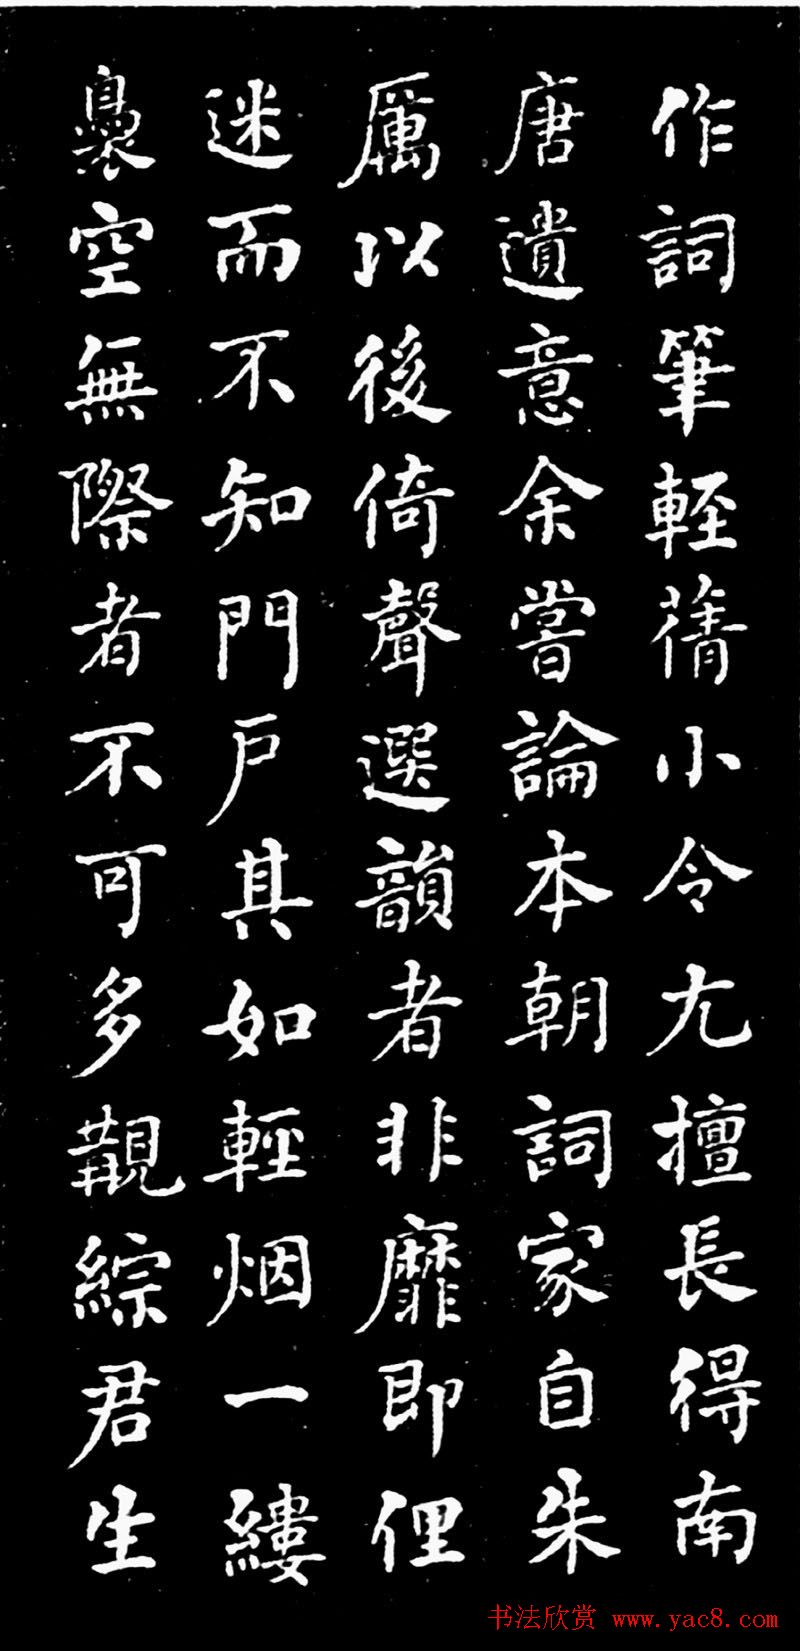 作詞筆輕蒨小令尤擅長得南
唐遺意余嘗論本朝詞家自朱
厲以後倚聲選韻者非靡即俚
迷而不知門户其如輕烟一縷
裊空無際者不可多覯綜君生
书法欣赏 www.yac8.com